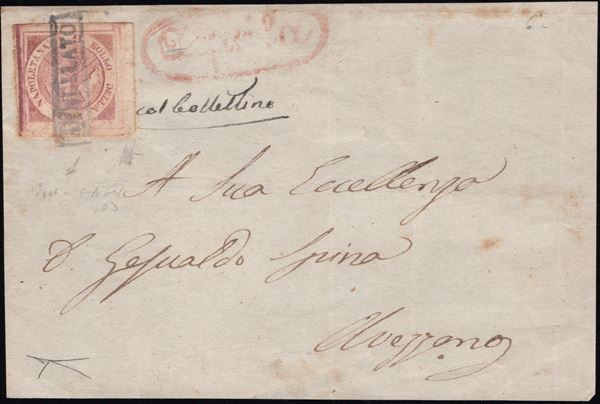 NAPOLETANA
BOLLO DELLA
ANNULLATO
col bollettino
A Sua Eccellenza
D. Gesualdo Spina
Avezzano